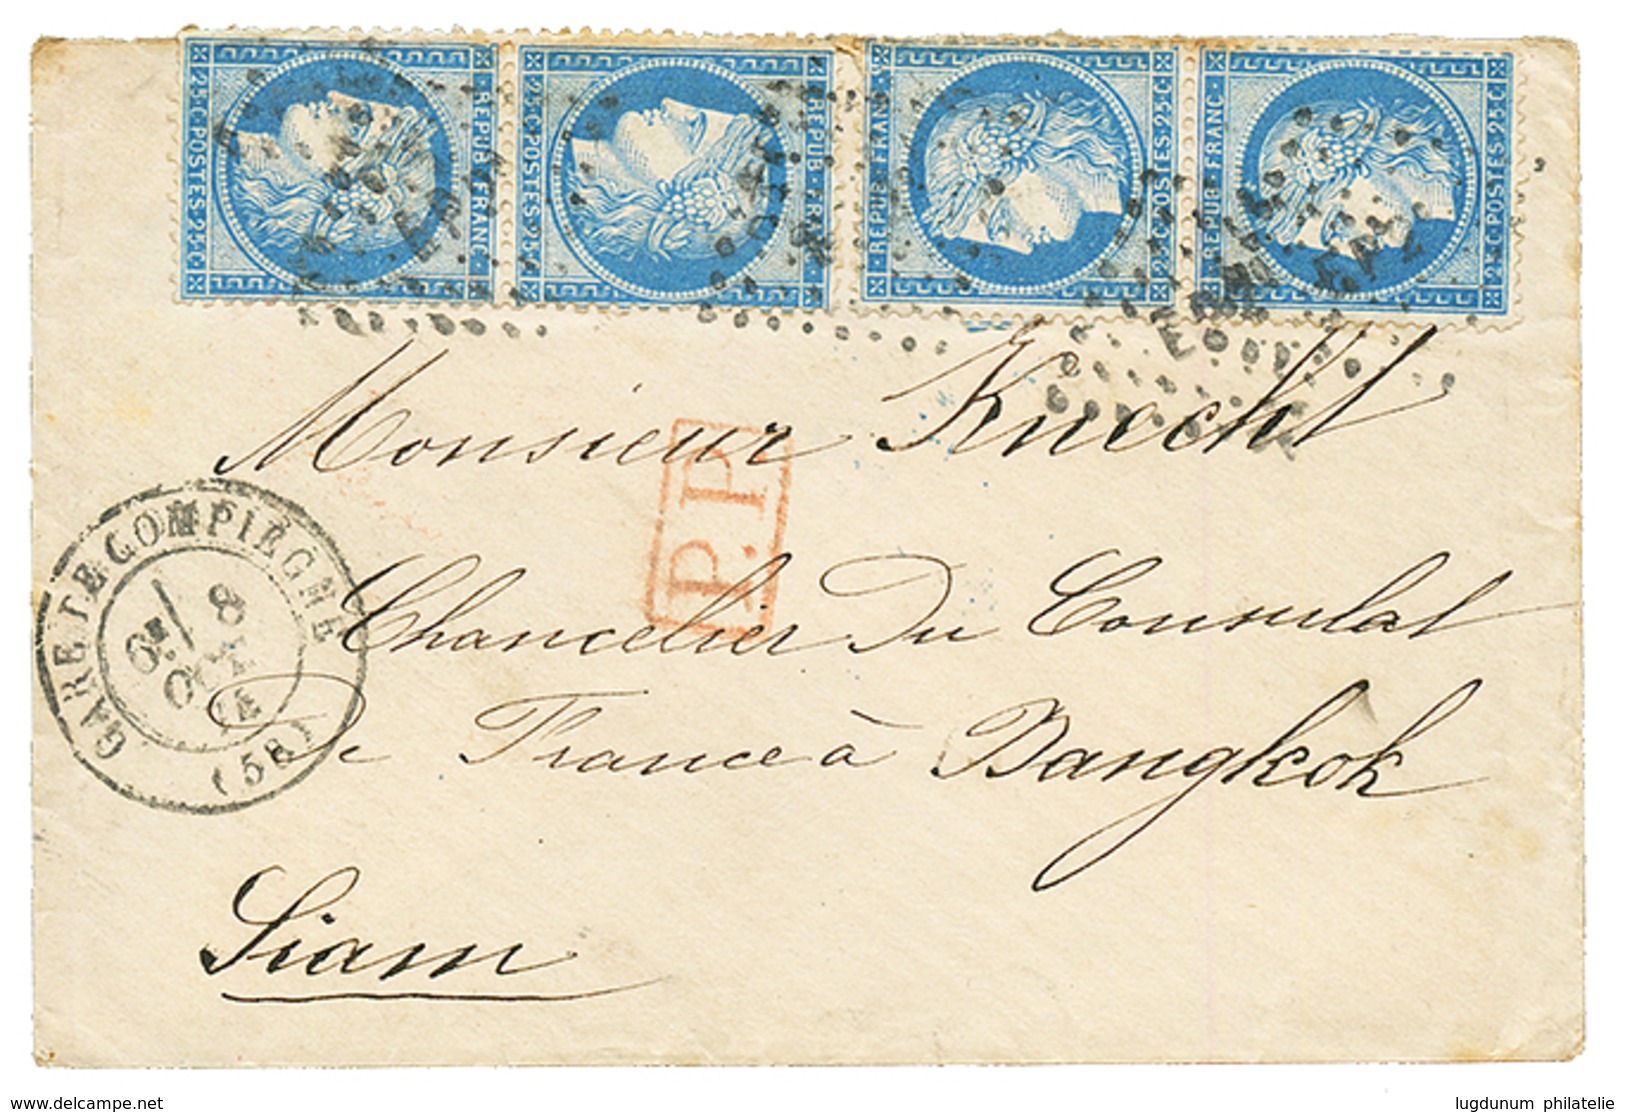 25·C·POSTES·25·C
·REPUB·FRANC·
25·C·POSTES·25·C
·REPUB·FRAN
·REPUB·FRANC·
25·C·POSTES·25·C
·REPUB·FRANC·
25·C·POSTES·25·C
Monsieur Knecht
P.P.
GARE DE COMPIÈGNE
6E
8
OCT
74
(58)
Chancelier Du Consulat
De France à Bangkok
Siam
www.delcampe.net
lugdunum philatelie